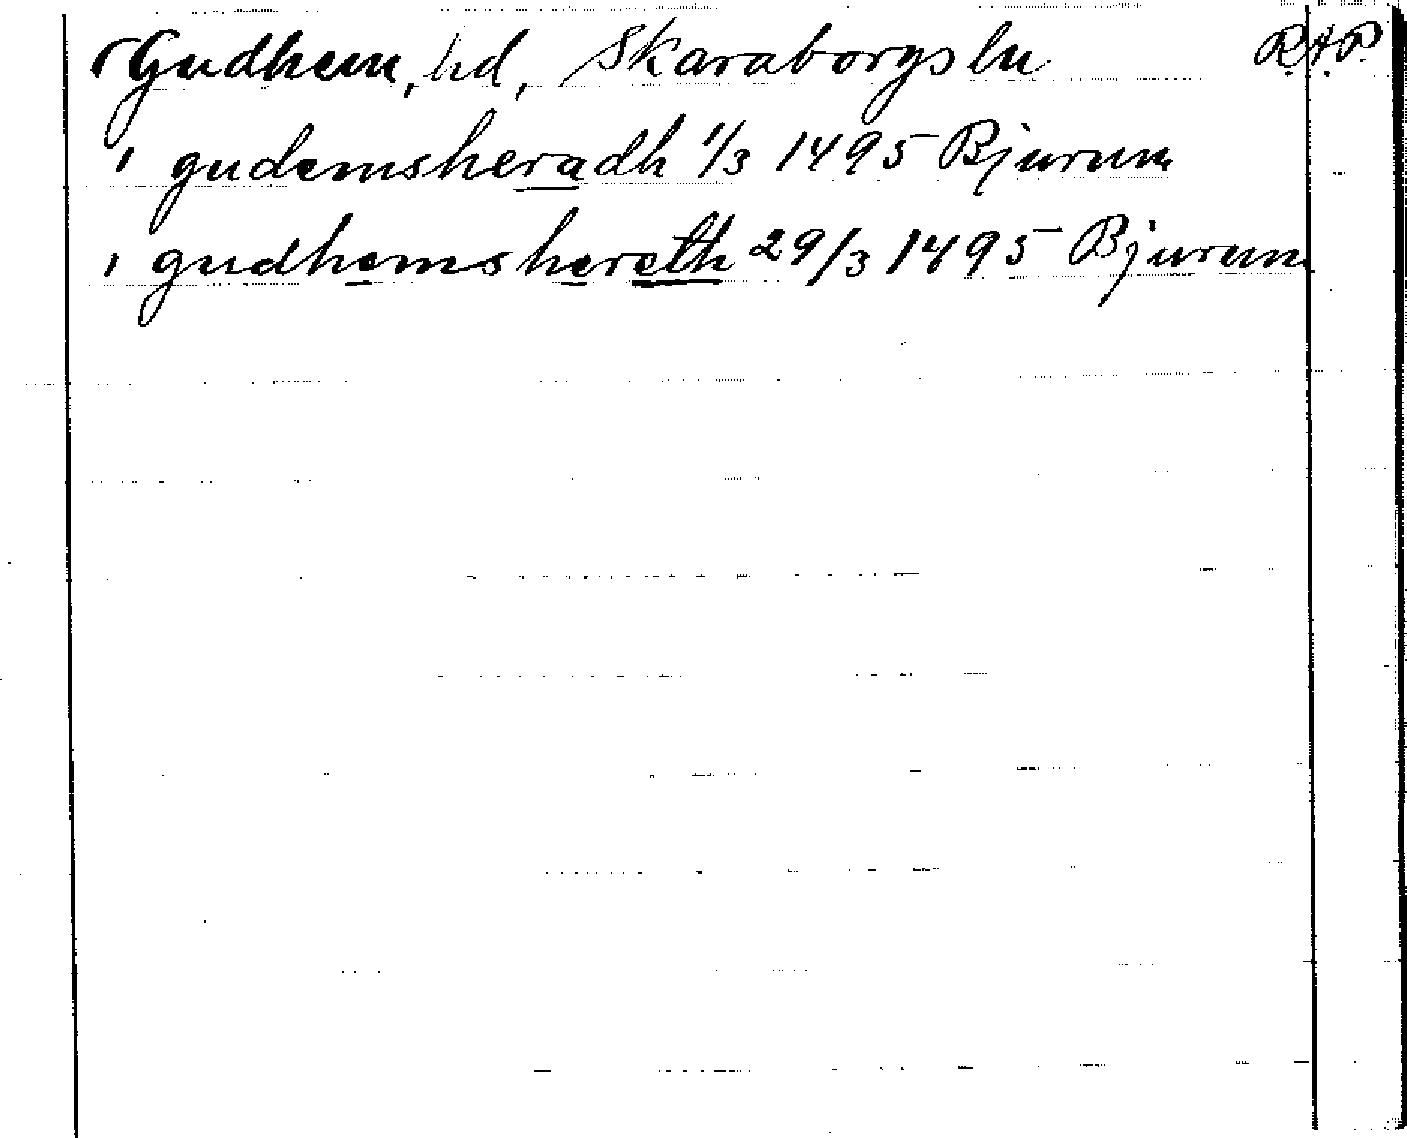 Gudhem, hd, Skaraborgs ln R.A.P.
i gudemsheradh 1/3 1495 Bjurum
i gudhemshereth 29/3 1495 Bjurum